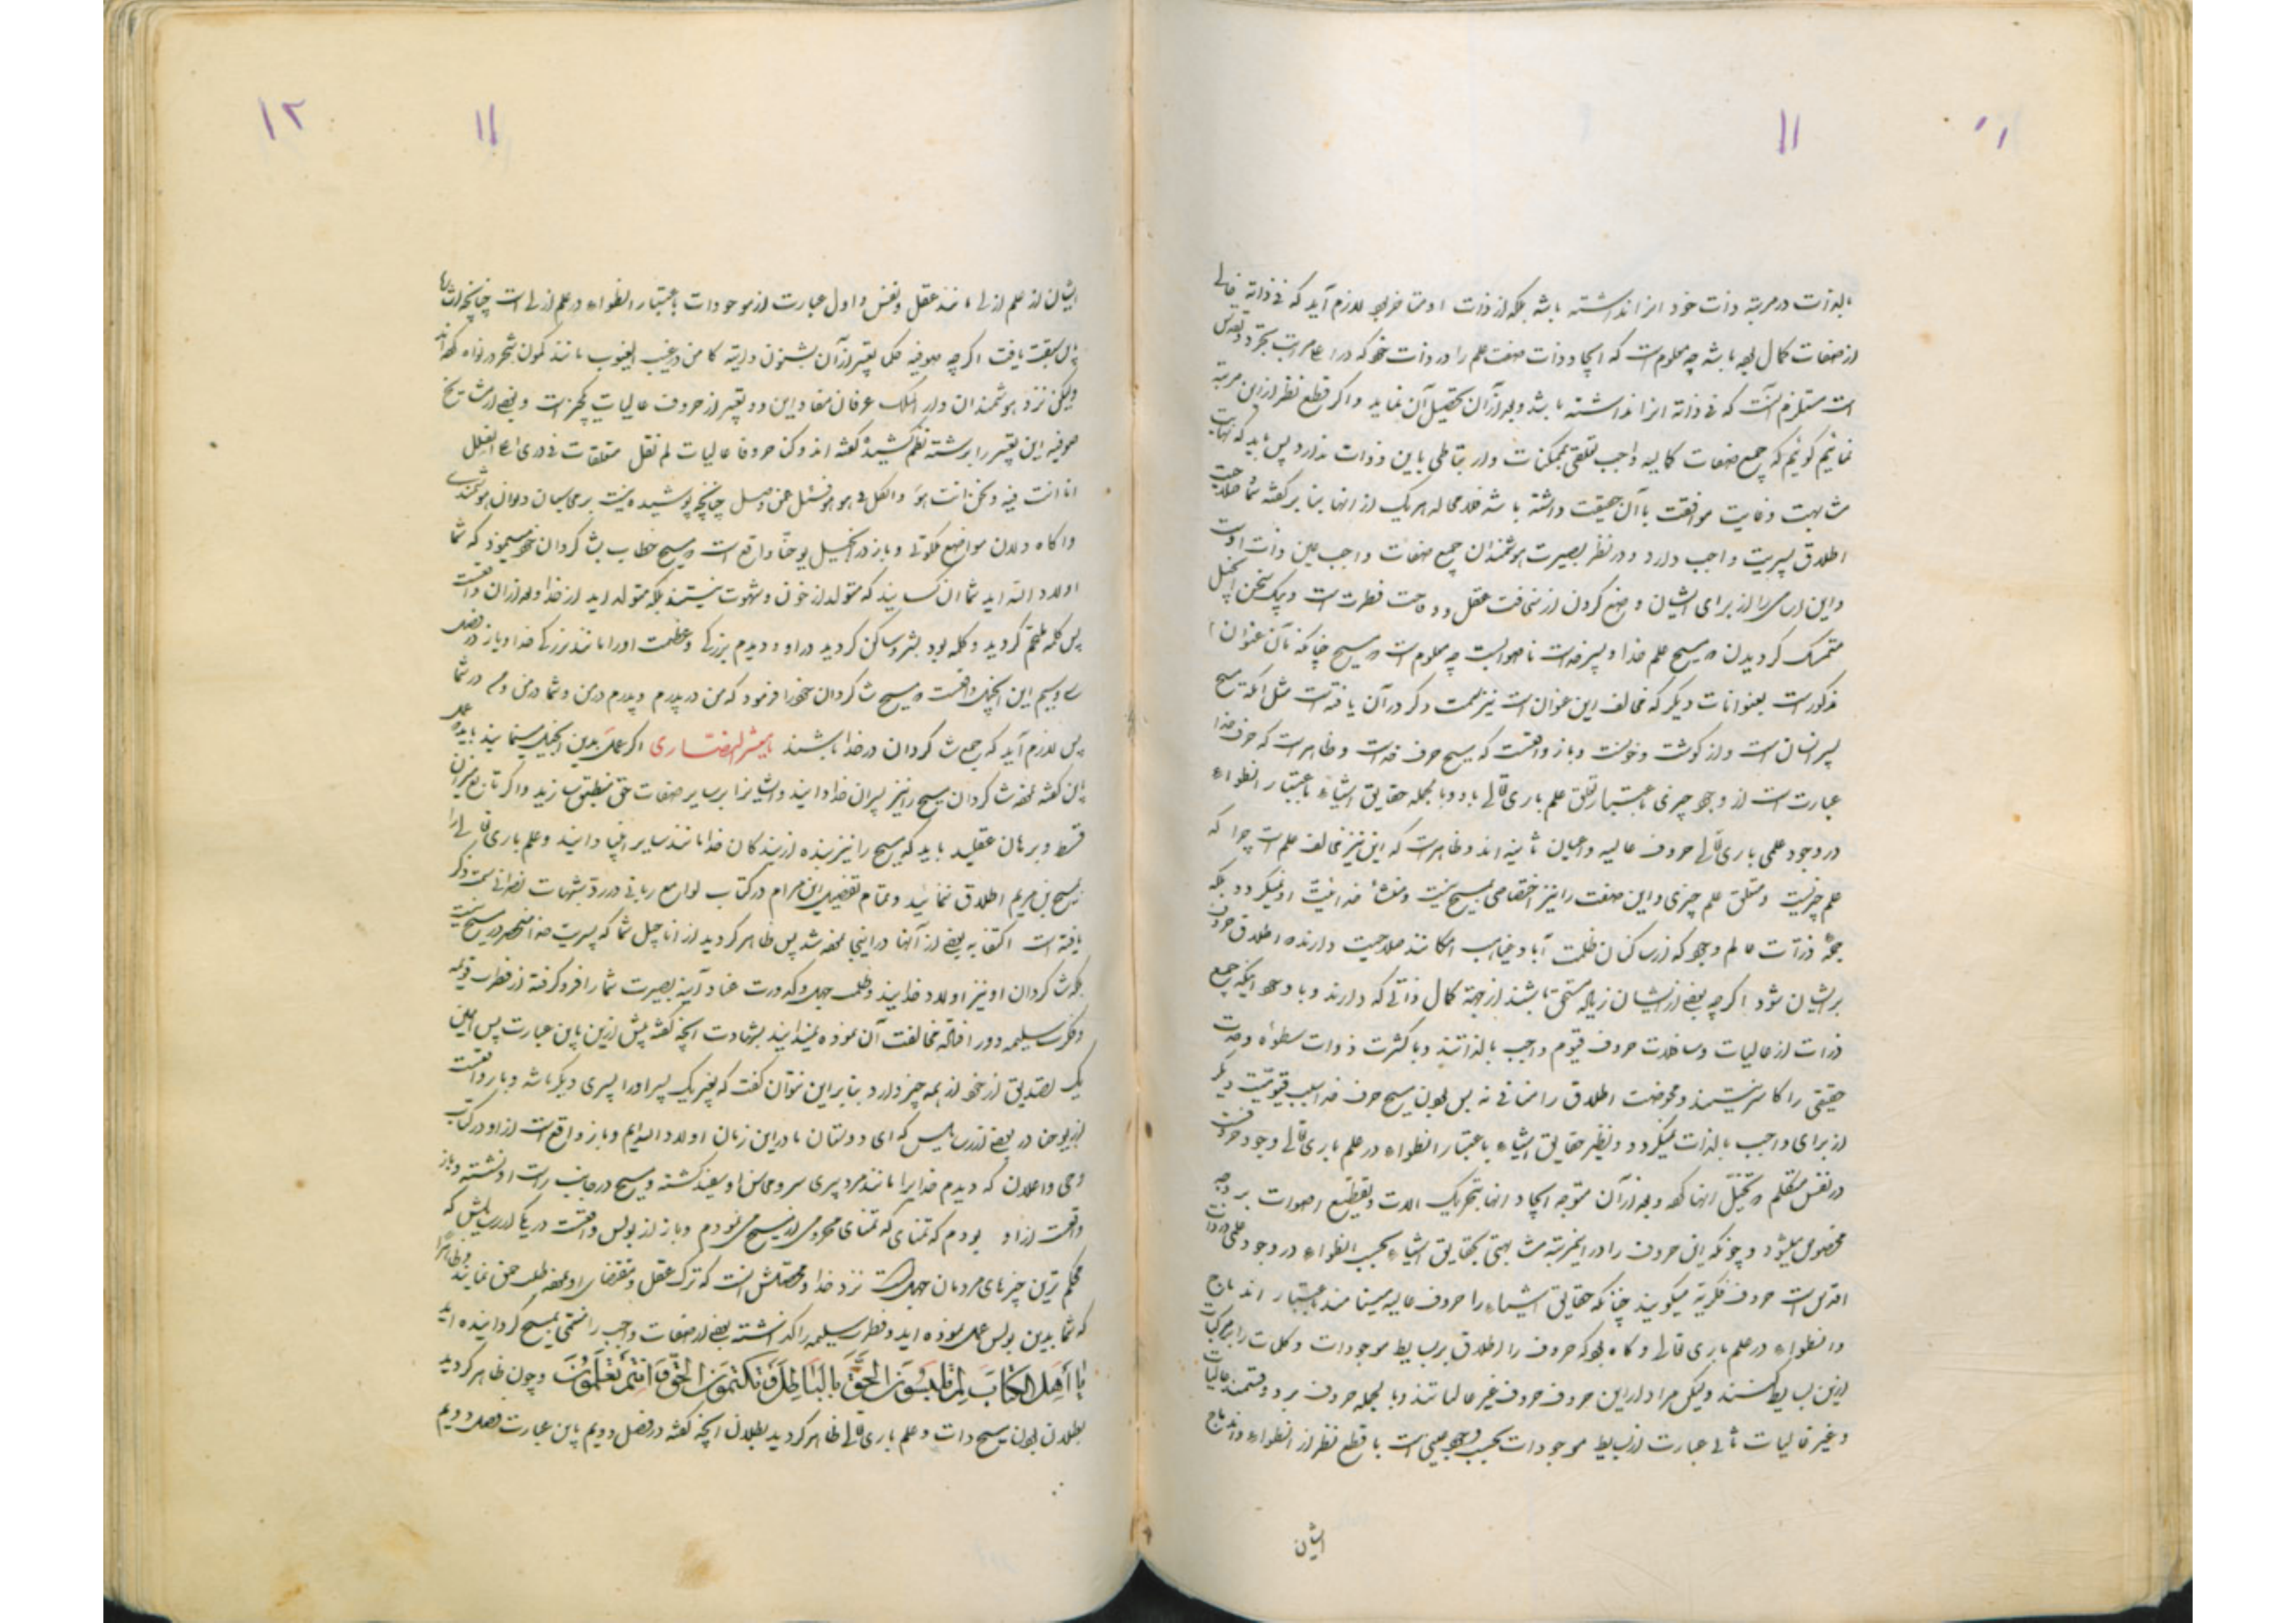 ۱۱
بالذات در مرتبه ذات خود انرا نداشته باشد بلکه از ذات او متاخر بود لازم آید که فی ذاته خالی
از صفات کمال بوده باشد چه معلوم است که ایجاد ذات صفت علم را در ذات خود که در اعلی مراتب تجرد و تقدس
است مستلزم آنست که فی ذاته انرا نداشته باشد و بعد از آن تحصیل آن نماید و اگر قطع نظر ازین مرتبه
نمائیم گوئیم که جمیع صفات کمالیه واجب تعلقی بممکنات و ارتباطی باین ذوات ندارد پس باید که نهایت
مشابهت و غایت موافقت با آن حقیقت داشته باشد فلا محاله هر یک از انها بنا بر گفته شما صلاحیت
اطلاق پسریت واجب دارد و در نظر بصیرت هوشمندان جمیع صفات واجب عین ذات اوست
و این اسامی را از برای ایشان وضع کردن از سخافت عقل و وقاحت فطرت است و بیک سخن انجیل
متمسک گردیدن که مسیح علم خدا و پسر خداست ناصوابست چه معلوم است که مسیح چنانکه بآن عنوان
مذکور است بعنوانات دیگر که مخالف این عنوان است نیز سمت ذکر در آن یافته است مثل آنکه مسیح
پسر انسان است و از گوشت و خونست و باز واقعست که مسیح حرف خداست و ظاهر است که حرف خدا
عبارت است از وجود چیزی باعتبار تعلق علم باری تعالی باو و بالجمله حقایق اشیاء باعتبار انطواء
در وجود علمی باری تعالی حروف عالیه و اعیان ثابته اند و ظاهر است که این نیز مخالف علم است چرا که
علم چیزیست و متعلق علم چیزی و این صفت را نیز اختصاصی بمسیح نیست و منشأ خدائیت او نمیگردد بلکه
جمله ذرات عالم وجود که از ساکنان ظلمت آباد غیاهب امکانند صلاحیت دارند که اطلاق حروف
بر ایشان شود اگرچه بعضی از ایشان زیاده مستحق باشند از جهة کمال ذاتی که دارند و با وجود اینکه جمیع
ذرات از عالیات و سافلات حروف قیوم واجب بالذاتند و با کثرت ذوات سطوة وحدت
حقیقی را کاسر نیستند و محوضت اطلاق را منافی نه پس بودن مسیح حرف خدا سبب قیومیت دیگر
از برای واجب بالذات نمیگردد و نظیر حقایق اشیاء باعتبار انطواء در علم باری تعالی وجود حروفست
در نفس متکلم که تخیل انها کرده و بعد از آن متوجه ایجاد انها بتحریک الات و تقطیع اصوات بر وجه
مخصوص میشود و چونکه این حروف را در انمرتبه مشابهتی بحقایق اشیاء بحسب انطواء در وجود علمی ذات
اقدس است حروف فکریه میگویند چنانکه حقایق اشیاء را حروف عالیه مینامند باعتبار اندماج
و انطواء در علم باری تعالی و گاه بود که حروف را اطلاق بر بسایط موجودات و کلمات را بر مرکبات
ازین بسایط کنند و لیکن مراد از این حروف حروف غیر عالیاتند و بالجمله حروف بر دو قسمند عالیات
و غیر عالیات ثانی عبارت از بسایط موجودات بحسب وجود عینی است با قطع نظر از انطواء و اندماج
ایشان
۱۲
۱۱
ایشان در علم ازلی مانند عقل و نفس و اول عبارت از موجودات باعتبار انطواء در علم ازلی است چنانچه اشارة
بآن سبقت یافت اگرچه صوفیه حکما تعبیر از آن بشئون ذاتیه کامن در غیب الغیوب مانند کمون شجر در نواه کرده اند
ولیکن نزد هوشمندان دار الملک عرفان مفاد این دو تعبیر از حروف عالیات یکچیز است و بعضی از مشایخ
صوفیه این تعبیر را برشته نظم کشیده گفته اند و کنا حروفا عالیات لم نقل متعلقات فی ذری اعلی القلل
انا انت فیه و نحن انت هو و الکل فی هو هو فسئل عمن وصل چنانچه پوشیده نیست بر محاسبان دیوان هوشمندی
و آگاه دلان صوامع ملکوتی و باز در انجیل یوحنا واقع است که مسیح خطاب بشاگردان خود میفرمود که شما
اولاد الله اید شما آن کسانیند که متولد از خون و شهوت نیستند بلکه متولد اید از خدا و بعد از آن واقعست
پس کلمه ملتحم گردید و کلمه بود بشر و ساکن گردید در او و دیدم بزرگی و عظمت او را مانند بزرگی خدا و باز در فصل
سی و سیم این انجیل واقعست که مسیح شاگردان خود را فرمود که من در پدرم و پدرم در من و شما در من و من در شما
پس لازم آید که جمیع شاگردان در خدا باشند یا معشر النصاری اگر عمل بدین انجیل مینمایند باید که عمل
باین گفته نموده شاگردان مسیح را نیز پسران خدا دانید و ایشانرا بر سایر صفات حق منطبق سازید و اگر تابع میزان
قسط و برهان عقلید باید که مسیح را نیز بنده از بندگان خدا مانند سایر انبیا دانید و علم باری تعالی را
بمسیح بن مریم اطلاق ننمائید و تمام تفصیل این مرام در کتاب لوامع ربانی در رد شبهات نصرانی سمت ذکر
یافته است اکتفا به بعضی از آنها در اینجا نموده شد پس ظاهر گردید از اناجیل شما که پسریت خدا منحصر در مسیح نیست
بلکه شاگردان او نیز اولاد خدایند و ظلمت جهل و کدورت عناد آینه بصیرت شما را فرو گرفته از فطرت قویمه
و فکرت سلیمه دور افتاده مخالفت آن نموده نمیدانید بشهادت آنچه گفته پیش ازین باین عبارت پس همین
یک تصدیق از خود از همه چیز دارد بنابر این نتوان گفت که بغیر یک پسر او را پسری دیگر باشد و باز واقعست
از یوحنا در بعضی از رسایلش که ای دوستان ما در این زمان اولاد اللهایم و باز واقع است از او در کتاب
وحی و اعلان که دیدم خدایرا مانند مرد پیری سر و محاسن او سفید گشته و مسیح در جانب راست او نشسته و باز
واقعست از او بودم که تمنای که تمنای محرومی از مسیح می نمودم و باز از بولس واقعست در یکی از رسایلش که
محکم ترین چیزهای مردمان جهل است نزد خدا و محصلش آنست که ترک عقل و مقتضای او نموده طلب حق نمایند و ظاهرا
که شما بدین بولس عمل نموده اید و فطرت سلیمه را گذاشته بعضی از صفات واجب را منتمی بمسیح گردانیده اید
یا أهل الکتاب لم تلبسون الحق بالباطل و تکتمون الحق و انتم تعلمون و چون ظاهر گردید
بطلان بودن مسیح ذات و علم باری تعالی ظاهر گردید بطلان آنچه گفته در فصل دویم باین عبارت فصل دویم